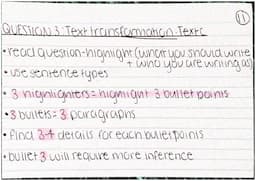 11
QUESTION 3: Text transformation - Text C
• read question-highlight (what you should write
+ who you are writing as)
• use sentence types
• 3 highlighters = highlight 3 bullet points
• 3 bullets = 3 paragraphs
• find 3-4 details for each bullet points
• bullet 3 will require more inference